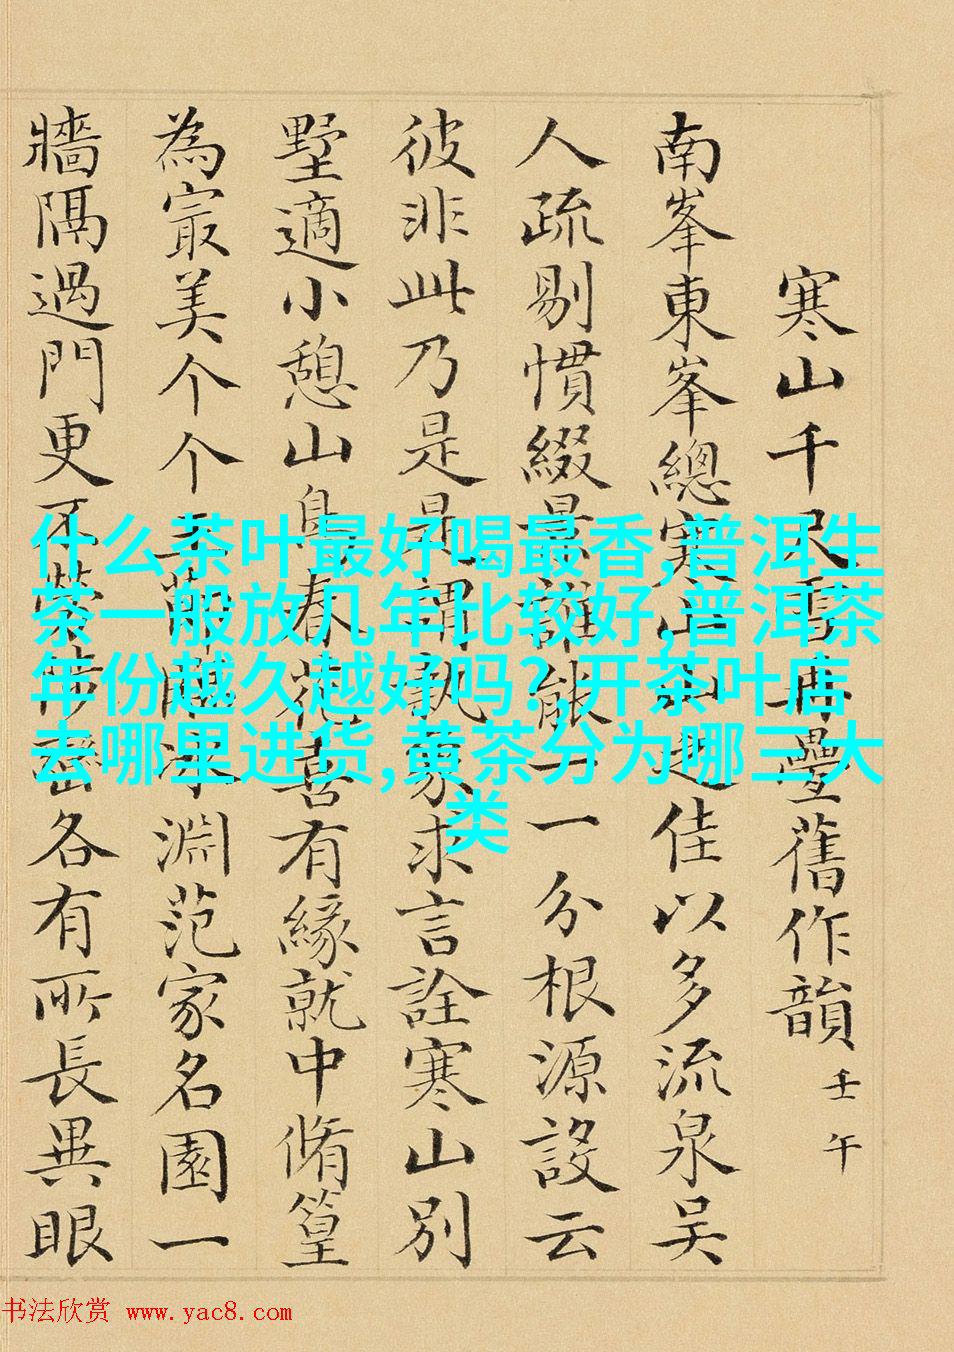 寒山千尺雪再疊舊作韻 壬午
南峯東峯總寒山佳以多流泉吴
人疏剔慣綴景誰能一一分根源設云
彼非此乃是是謂孰象求言詮寒山別
墅適小憩山鳥春花喜有緣就中脩篁
為冣美个个臨冰淵范家名園一
牆隔過門更不縈各有所長異眼
什么茶叶最好喝最香,普洱生
茶一般放几年比较好,普洱茶
年份越久越好吗? 开茶叶店
去哪里进货,黄茶分为哪三大
类
书法欣赏 www.yac8.com